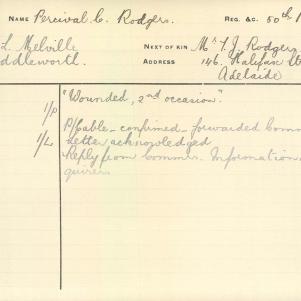 NAME Percival C. Rodgers. REG. &C. 50th
L. Melville NEXT OF KIN Mr. T. J. Rodgers
ddleworth. ADDRESS 146. Halifax St
Adelaide
1/P "Wounded, 2nd occasion."
P/Cable - confirmed - forwarded Comm
1/L. Letter acknowledged
Reply from Commr. Information
quirer